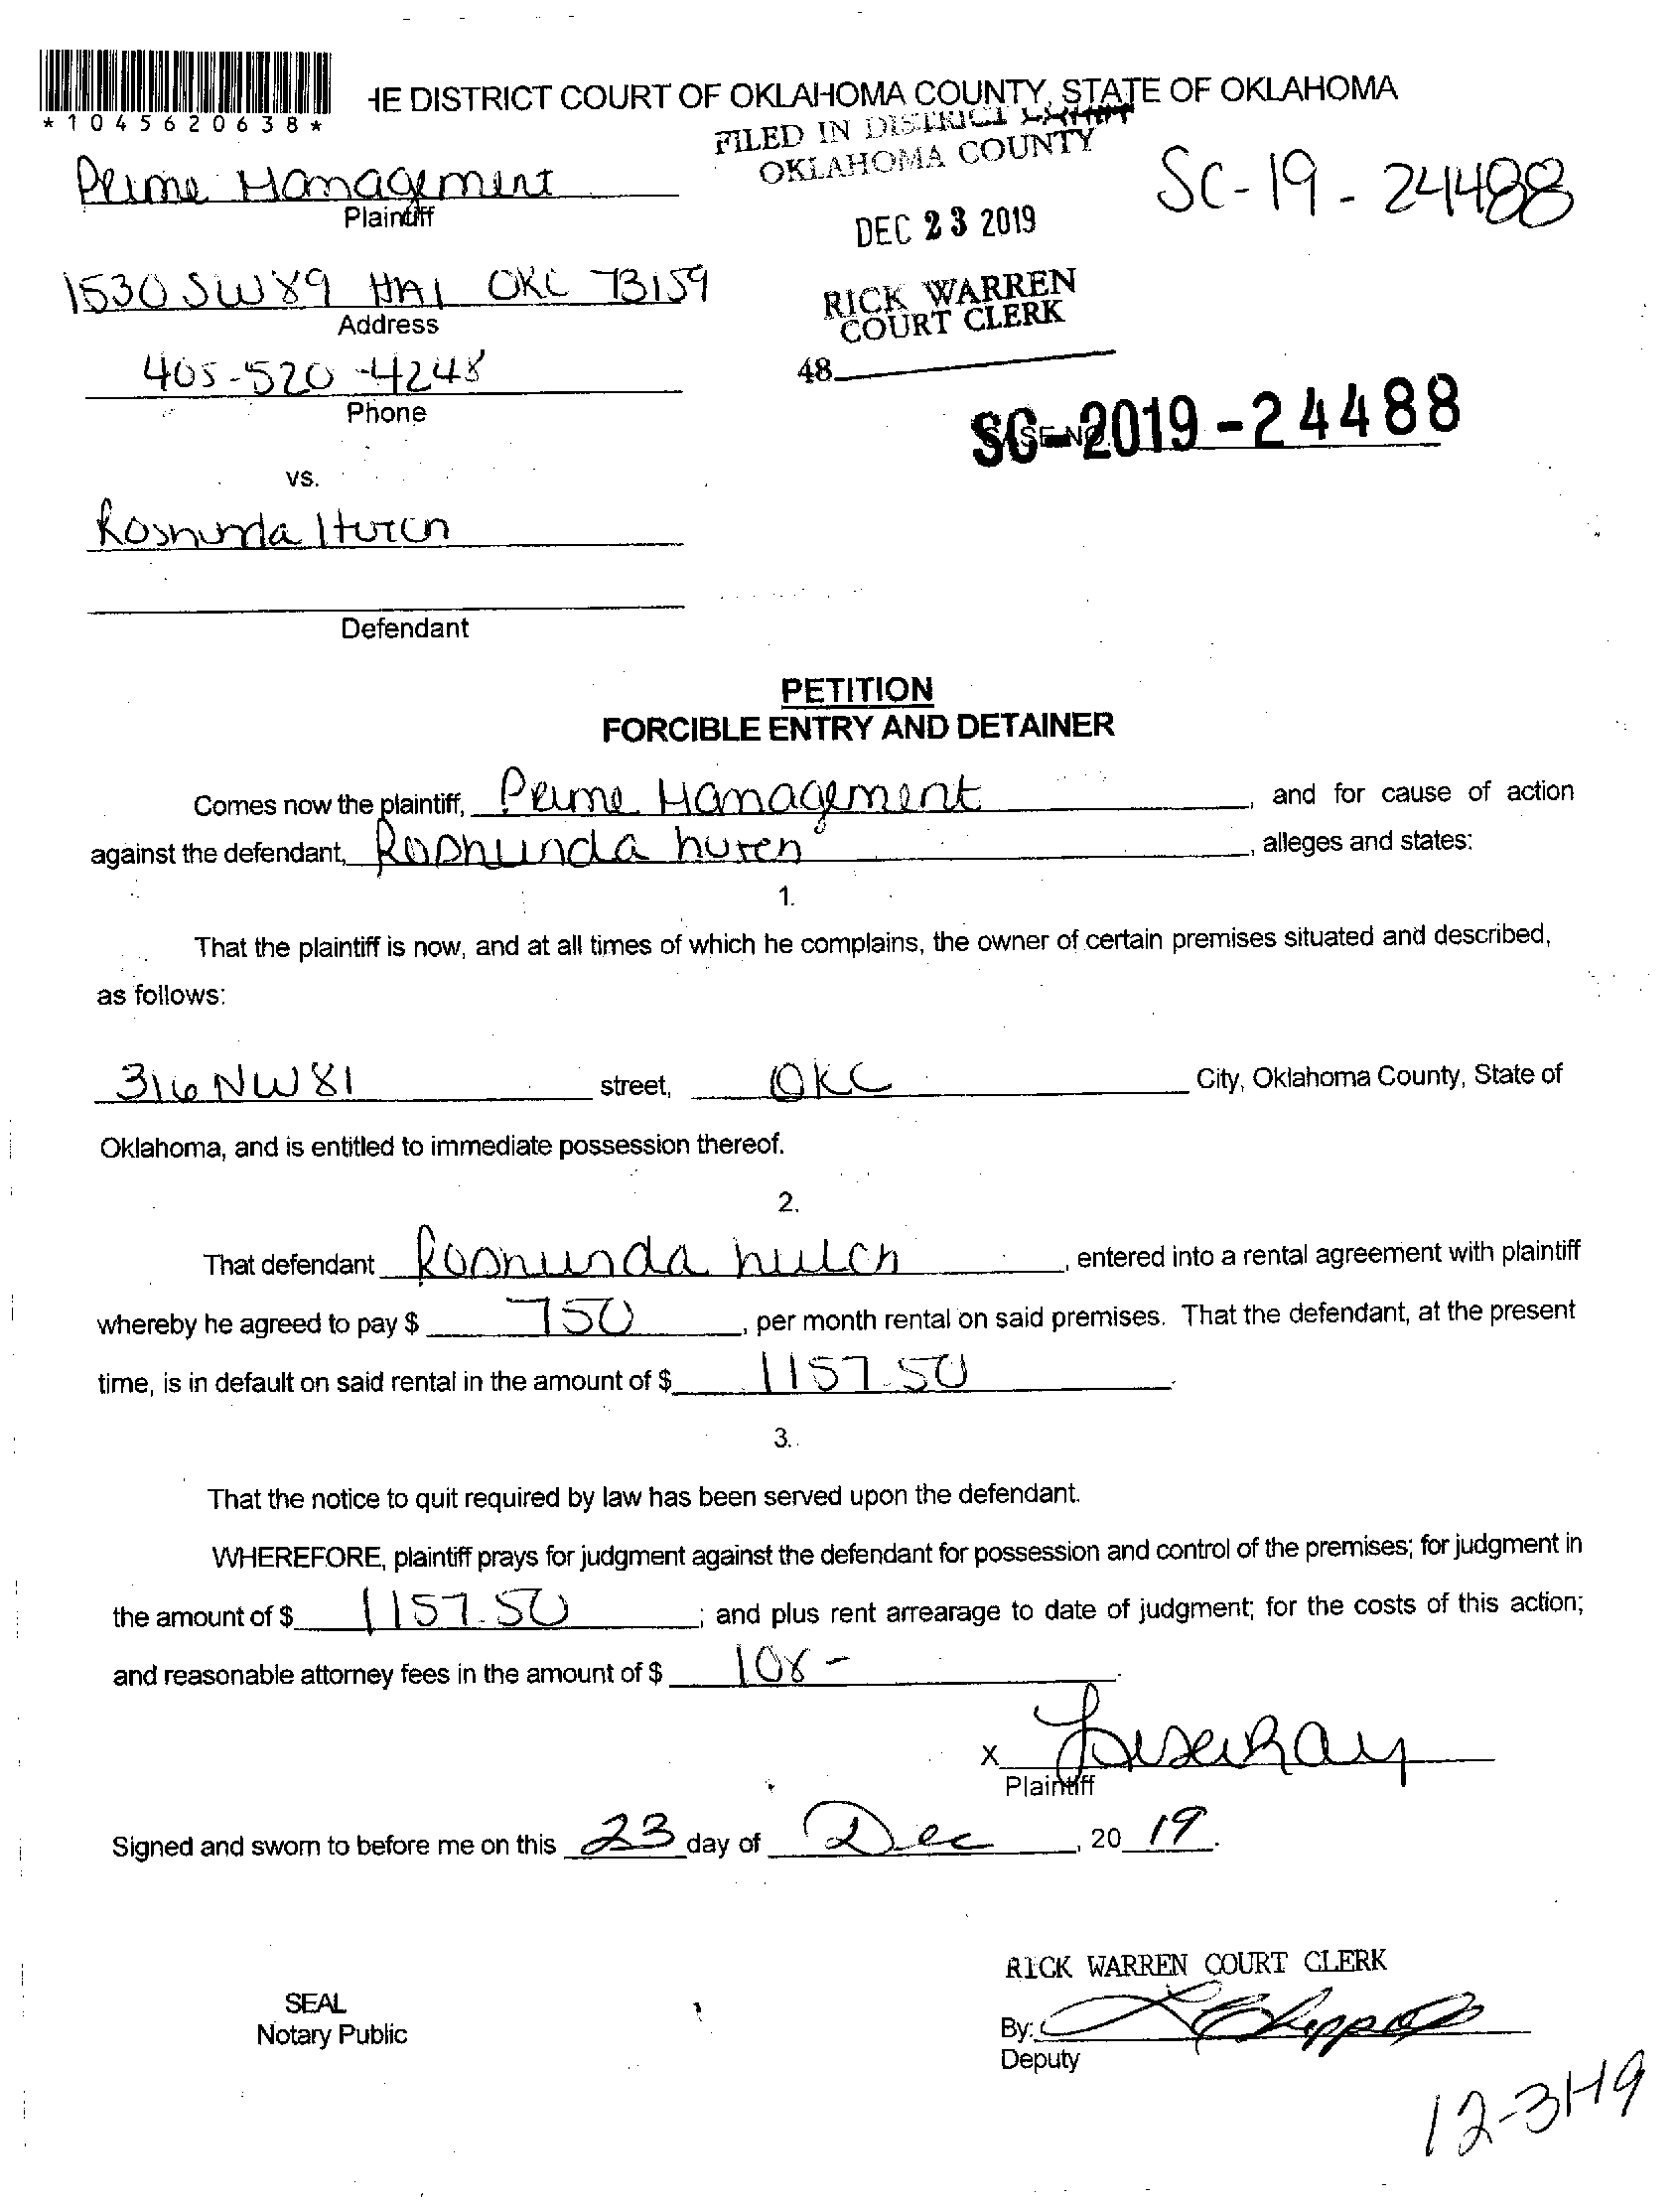 *1045620638*
HE DISTRICT COURT OF OKLAHOMA COUNTY, STATE OF OKLAHOMA
FILED IN DISTRICT COURT
OKLAHOMA COUNTY
SC-19-24488
Prime Management
Plaintiff
DEC 23 2019
1530 SW 89 OKC 73159
Address
RICK WARREN
COURT CLERK
405-520-4248
Phone
48
CASE NO.
SC-2019-24488
vs.
Roshunda
Defendant
PETITION
FORCIBLE ENTRY AND DETAINER
Comes now the plaintiff, Prime Management, and for cause of action
against the defendant, Roshunda, alleges and states:
1.
That the plaintiff is now, and at all times of which he complains, the owner of certain premises situated and described,
as follows:
316 NW 81 street, OKC City, Oklahoma County, State of
Oklahoma, and is entitled to immediate possession thereof.
2.
That defendant Roshunda, entered into a rental agreement with plaintiff
whereby he agreed to pay $ 750, per month rental on said premises. That the defendant, at the present
time, is in default on said rental in the amount of $ 1157.50.
3.
That the notice to quit required by law has been served upon the defendant.
WHEREFORE, plaintiff prays for judgment against the defendant for possession and control of the premises; for judgment in
the amount of $ 1157.50; and plus rent arrearage to date of judgment; for the costs of this action;
and reasonable attorney fees in the amount of $ 108-.
x
Plaintiff
Signed and sworn to before me on this 23 day of Dec, 20 19.
RICK WARREN COURT CLERK
SEAL
Notary Public
By:
Deputy
12-31-19